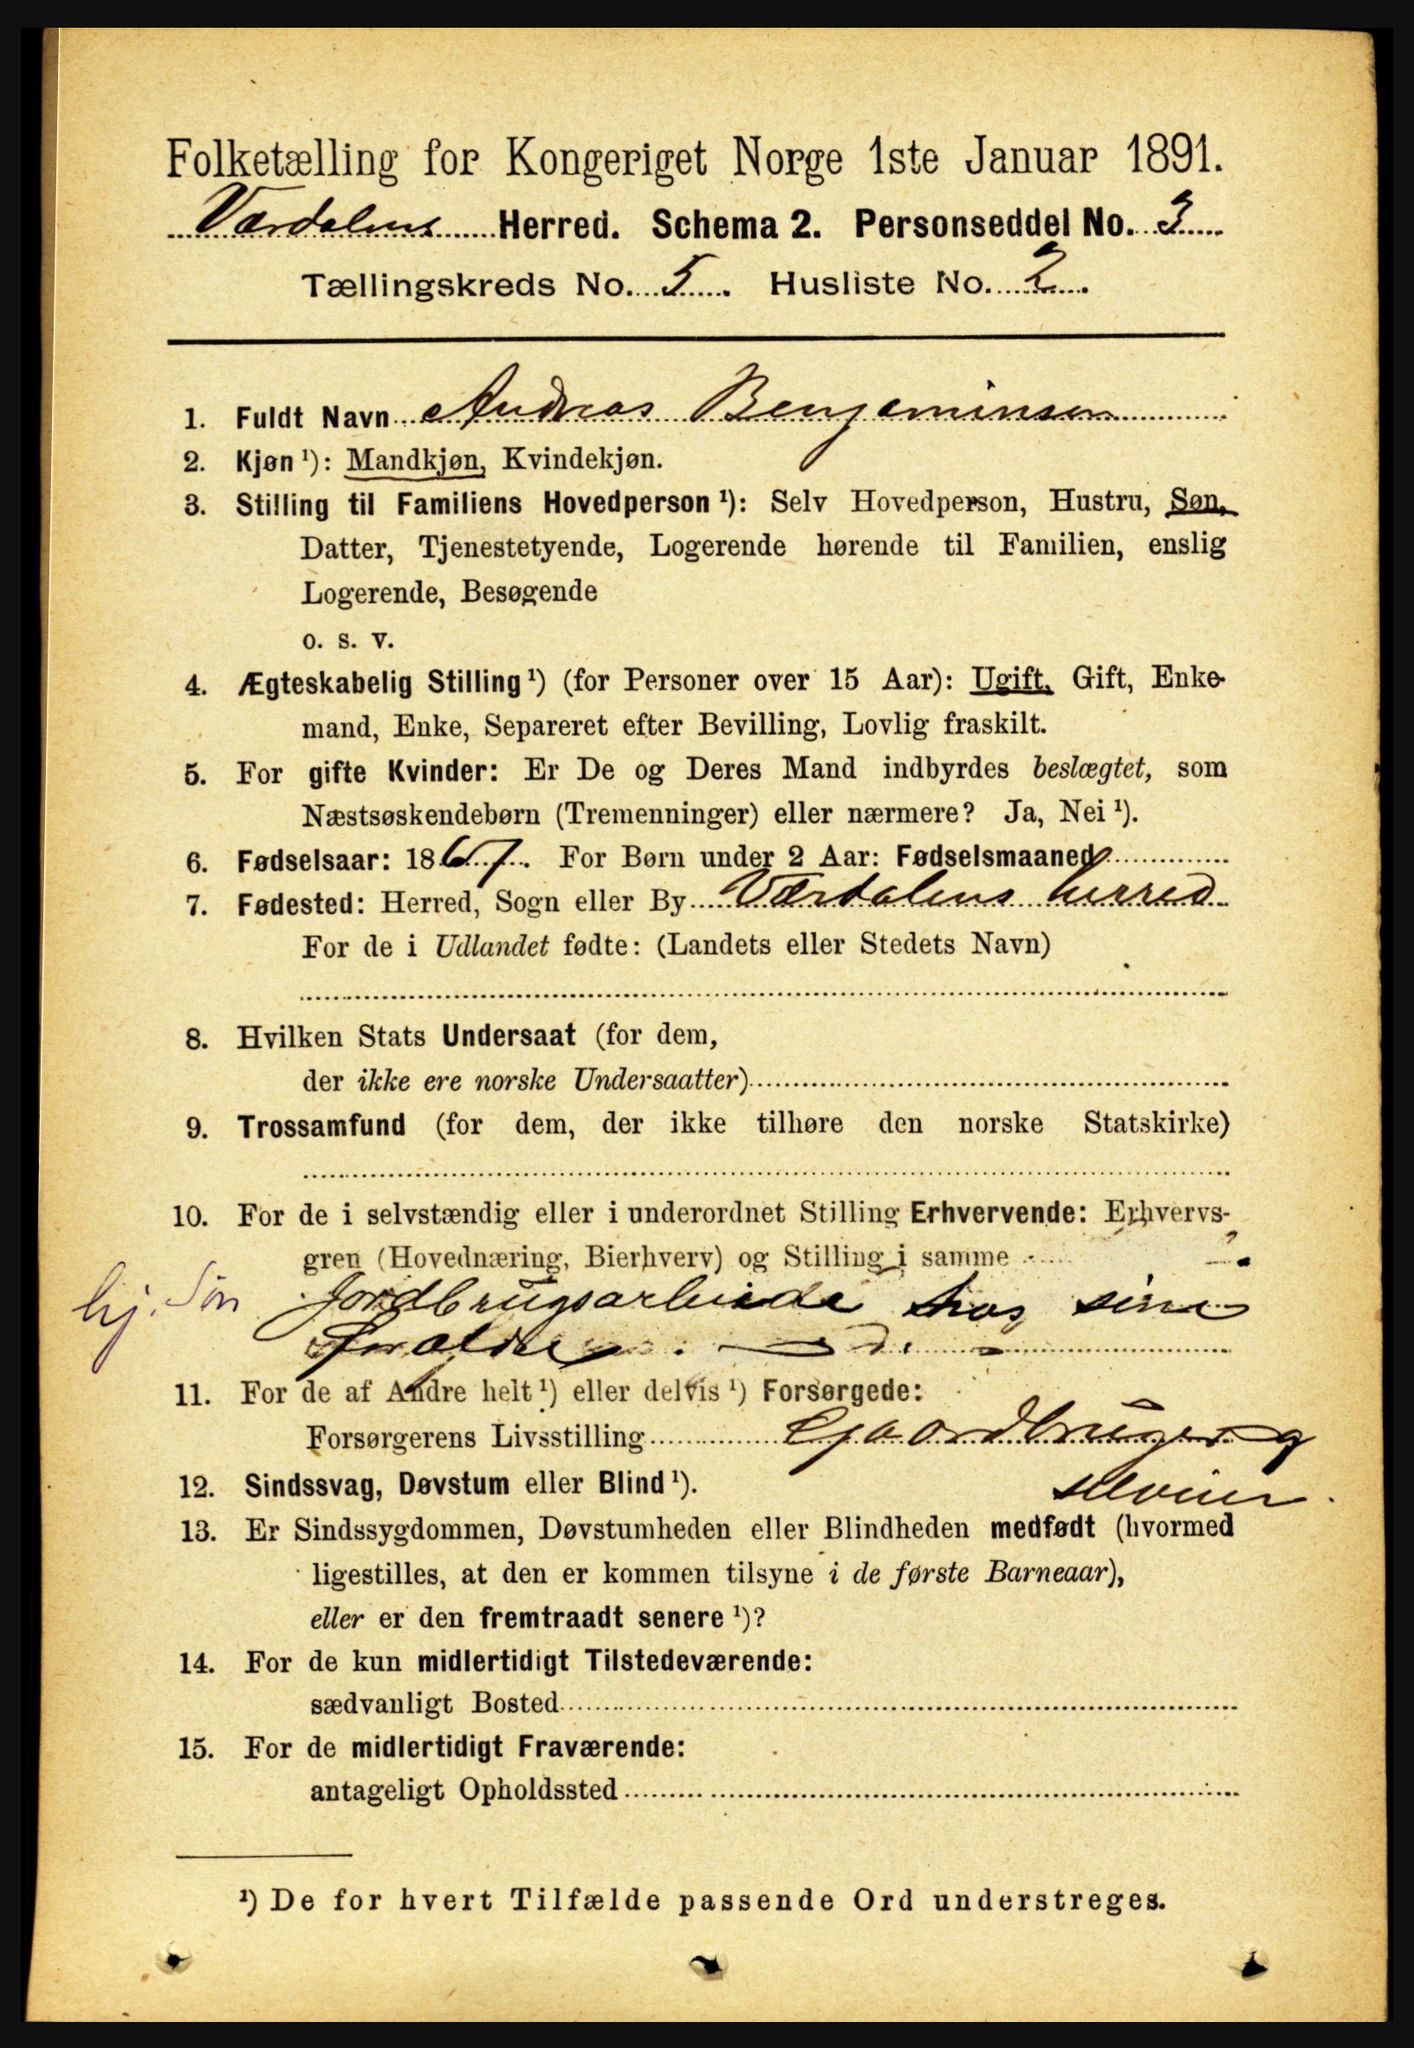 Folketælling for Kongeriget Norge 1ste Januar 1891.
Værdalens Herred. Schema 2. Personseddel No. 3
Tællingskreds No. 5. Husliste No. 2.
1. Fuldt Navn Andreas Benjaminsen
2. Kjøn ¹): Mandkjøn, Kvindekjøn.
3. Stilling til Familiens Hovedperson ¹): Selv Hovedperson, Hustru, Søn,
Datter, Tjenestetyende, Logerende hørende til Familien, enslig
Logerende, Besøgende
o. s. v.
4. Ægteskabelig Stilling ¹) (for Personer over 15 Aar): Ugift, Gift, Enke-
mand, Enke, Separeret efter Bevilling, Lovlig fraskilt.
5. For gifte Kvinder: Er De og Deres Mand indbyrdes beslægtet, som
Næstsøskendebørn (Tremenninger) eller nærmere? Ja, Nei ¹).
6. Fødselsaar: 1867. For Børn under 2 Aar: Fødselsmaaned
7. Fødested: Herred, Sogn eller By Værdalens herred
For de i Udlandet fødte: (Landets eller Stedets Navn)
8. Hvilken Stats Undersaat (for dem,
der ikke ere norske Undersaatter)
9. Trossamfund (for dem, der ikke tilhøre den norske Statskirke)
10. For de i selvstændig eller i underordnet Stilling Erhvervende: Erhvervs-
gren (Hovednæring, Bierhverv) og Stilling i samme
hj. Søn Jordbrugsarbeide hos sine
forældre.
11. For de af Andre helt ¹) eller delvis ¹) Forsørgede:
Forsørgerens Livsstilling Gaardbruger og
selveier
12. Sindssvag, Døvstum eller Blind ¹).
13. Er Sindssygdommen, Døvstumheden eller Blindheden medfødt (hvormed
ligestilles, at den er kommen tilsyne i de første Barneaar),
eller er den fremtraadt senere ¹)?
14. For de kun midlertidigt Tilstedeværende:
sædvanligt Bosted
15. For de midlertidigt Fraværende:
antageligt Opholdssted
¹) De for hvert Tilfælde passende Ord understreges.